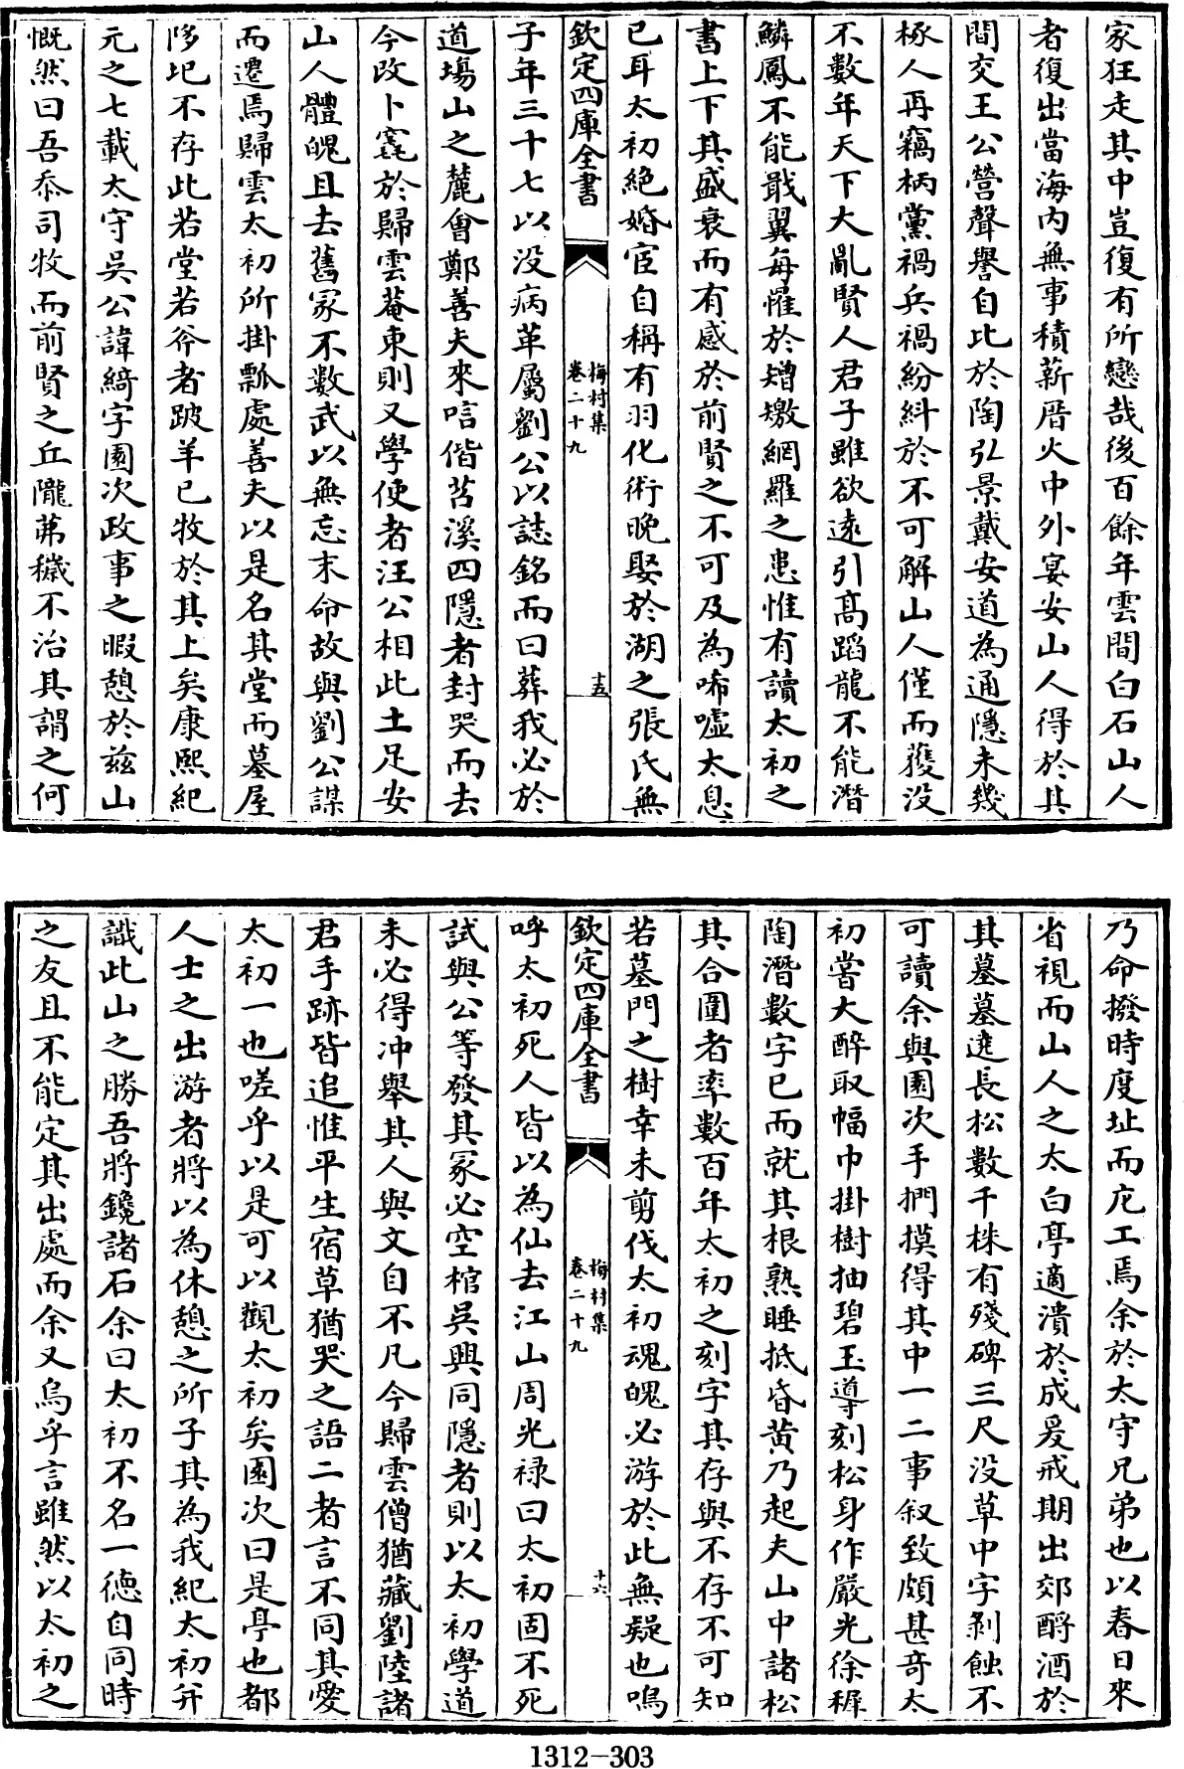 家狂走其中豈復有所戀哉後百餘年雲間白石山人
者復出當海内無事積薪厝火中外宴安山人得於其
間交王公營聲譽自比於陶弘景戴安道為通隱未幾
椓人再竊柄黨禍兵禍紛糾於不可解山人僅而獲没
不數年天下大亂賢人君子雖欲遠引髙蹈龍不能潜
鱗鳳不能戢翼每懼於矰繳網羅之患惟有讀太初之
書上下其盛衰而有感於前賢之不可及為唏嘘太息
已耳太初絶婚宦自稱有羽化術晩娶於湖之張氏無
欽定四庫全書
梅村集
卷二十九
十五
子年三十七以没病革屬劉公以誌銘而曰葬我必於
道場山之麓會鄭善夫來唁偕苕溪四隱者封哭而去
今改卜窀於歸雲菴東則又學使者汪公相此土足安
山人體魄且去舊冢不數武以無忘末命故與劉公謀
而遷焉歸雲太初所掛瓢處善夫以是名其堂而墓屋
陊圯不存此若堂若斧者跛羊已牧於其上矣康熙紀
元之七載太守吳公諱綺字園次政事之暇憩於兹山
慨然曰吾忝司牧而前賢之丘隴茀穢不治其謂之何
乃命撥時度址而庀工焉余於太守兄弟也以春日來
省視而山人之太白亭適潰於成爰戒期出郊酹酒於
其墓墓遶長松數千株有殘碑三尺没草中字剥蝕不
可讀余與園次手捫摸得其中一二事叙致頗甚竒太
初嘗大醉取幅巾掛樹抽碧玉導刻松身作嚴光徐穉
陶潛數字已而就其根熟睡抵昏黄乃起夫山中諸松
其合圍者率數百年太初之刻字其存與不存不可知
若墓門之樹幸未剪伐太初魂魄必游於此無疑也嗚
欽定四庫全書
梅村集
卷二十九
十六
呼太初死人皆以為仙去江山周光禄曰太初固不死
試與公等發其冢必空棺吳興同隱者則以太初學道
未必得冲舉其人與文自不凡今歸雲僧猶藏劉陸諸
君手跡皆追惟平生宿草猶哭之語二者言不同其愛
太初一也嗟乎以是可以觀太初矣園次曰是亭也都
人士之出游者將以為休憩之所子其為我紀太初并
識此山之勝吾將鑱諸石余曰太初不名一德自同時
之友且不能定其出處而余又烏乎言雖然以太初之
1312-303